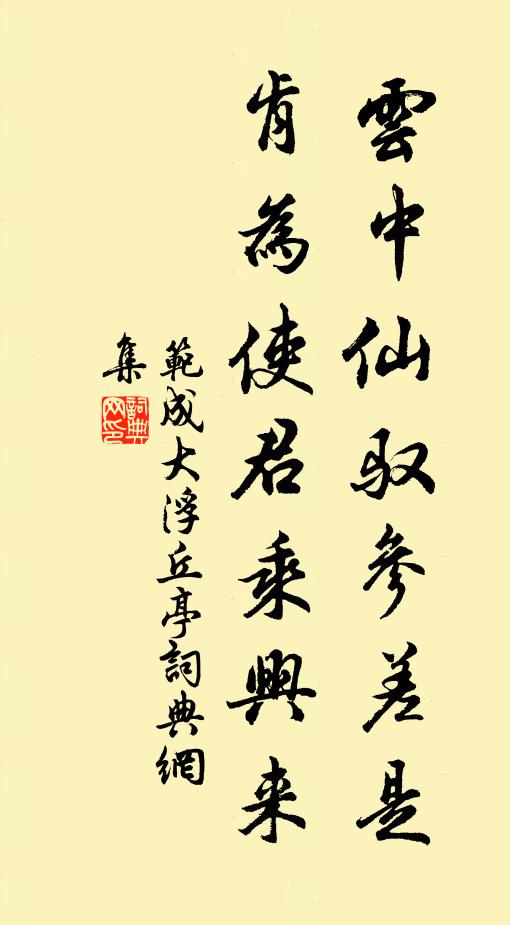 雲中仙馭參差是
肯為使君乘興来
範成大浮丘亭詞典網
集
詞典
网印